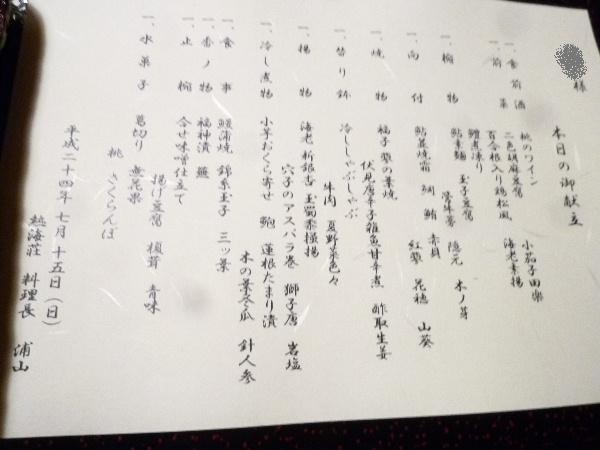 様
本日の御献立
一、食前酒 桃のワイン
一、前菜 二色胡麻豆腐 小茄子田楽
百合根入り鶏松風 海老素揚
鱧煮凍り
一、椀物 鮎素麺 玉子豆腐
管牛蒡 隠元 木ノ芽
一、向付 鮎葛焼霜 鯛 鮪 赤貝
紅蓼 花穂 山葵
一、焼物 福子 蓼の葉焼
伏見唐辛子雑魚甘辛煮 酢取生姜
一、替り鉢 冷ししゃぶしゃぶ
牛肉 夏野菜色々
一、揚物 海老 新銀杏 玉蜀黍掻揚
穴子のアスパラ巻 獅子唐 岩塩
一、冷し煮物 小芋おくら寄せ 鮑 蓮根たまり漬
木の葉冬瓜 針人参
一、食事 鰻蒲焼 錦糸玉子 三ッ葉
一、香ノ物 福神漬
一、止椀 合せ味噌仕立て
揚げ豆腐 青味
一、水菓子 葛切り 無花果
桃 さくらんぼ
平成二十四年七月十五日(日)
熱海荘 料理長 浦山